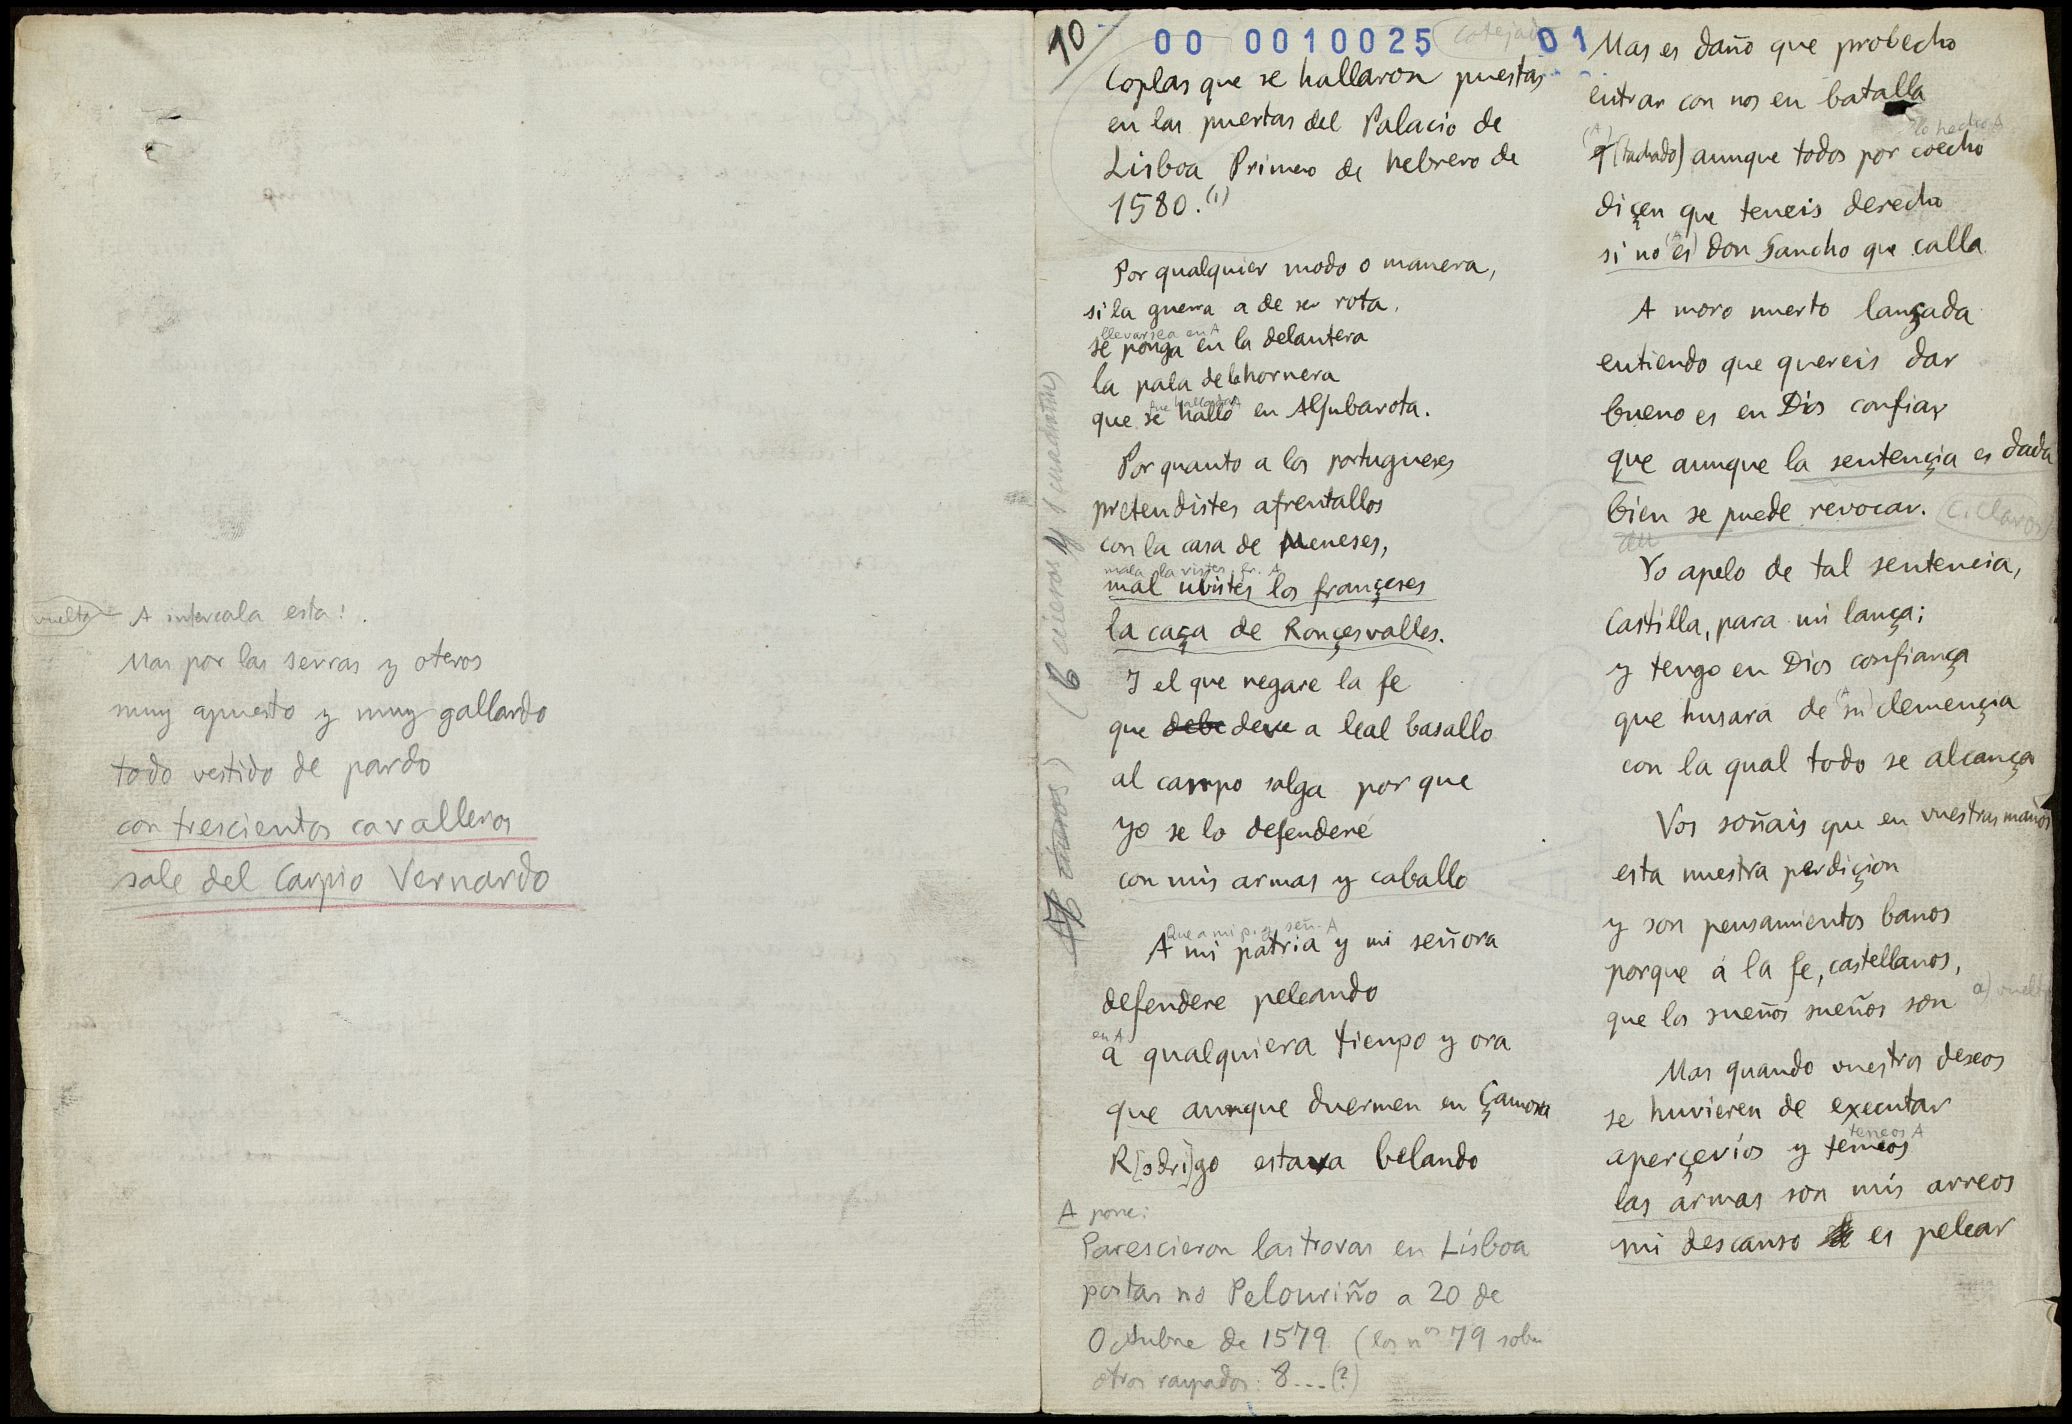 vuelta A intercala esta:
Mas por las serras y oteros
muy apuesto y muy gallardo
todo vestido de pardo
con trescientos cavalleros
sale del Carpio Vernardo
10
00 0010025 01
cotejado
Coplas que se hallaron puestas
en las puertas del Palacio de
Lisboa Primero de hebrero de
1580. (1)
Por qualquier modo o manera,
si la guerra a de ser rota,
llevarsea en A
se ponga en la delantera
la pala de la hornera
fue hallada A
que se halló en Aljubarota.
Por quanto a los portugueses
pretendistes afrentallos
con la casa de Meneses,
mala la vistes fr. A
mal uvistes los françeses
la caça de Ronçesvalles.
I el que negare la fe
que debe deve a leal basallo
al campo salga por que
yo se lo defenderé
con mis armas y caballo
Que a mi p. y señ. A
A mi patria y mi señora
defendere peleando
en A
a qualquiera tiempo y ora
que aunque duermen en Çamora
R[odri]go estava belando
A pone:
Parescieron las trovas en Lisboa
postas no Pelouriño a 20 de
Octubre de 1579 (los nos 79 sobre
otros raspados: 8...(?)
Mas es daño que probecho
entrar con nos en batalla
lo hecho A
(A) q (tachado) aunque todos por coecho
diçen que teneis derecho
si no (A es) don Sancho que calla
A moro muerto lançada
entiendo que quereis dar
bueno es en Dios confiar
que aunque la sentençia es dada
bien se puede revocar. C. Claros
Yo apelo de tal sentencia,
Castilla, para mi lança;
y tengo en Dios confiança
que husara de (A su) clemençia
con la qual todo se alcança
Vos soñais que en vuestras manos
esta nuestra perdiçion
y son pensamientos banos
porque á la fe, castellanos,
que los sueños sueños son a) vuelta
Mas quando vuestros deseos
se huvieren de executar
teneos A
aperçevios y temeos
las armas son mis arreos
mi descanso es pelear